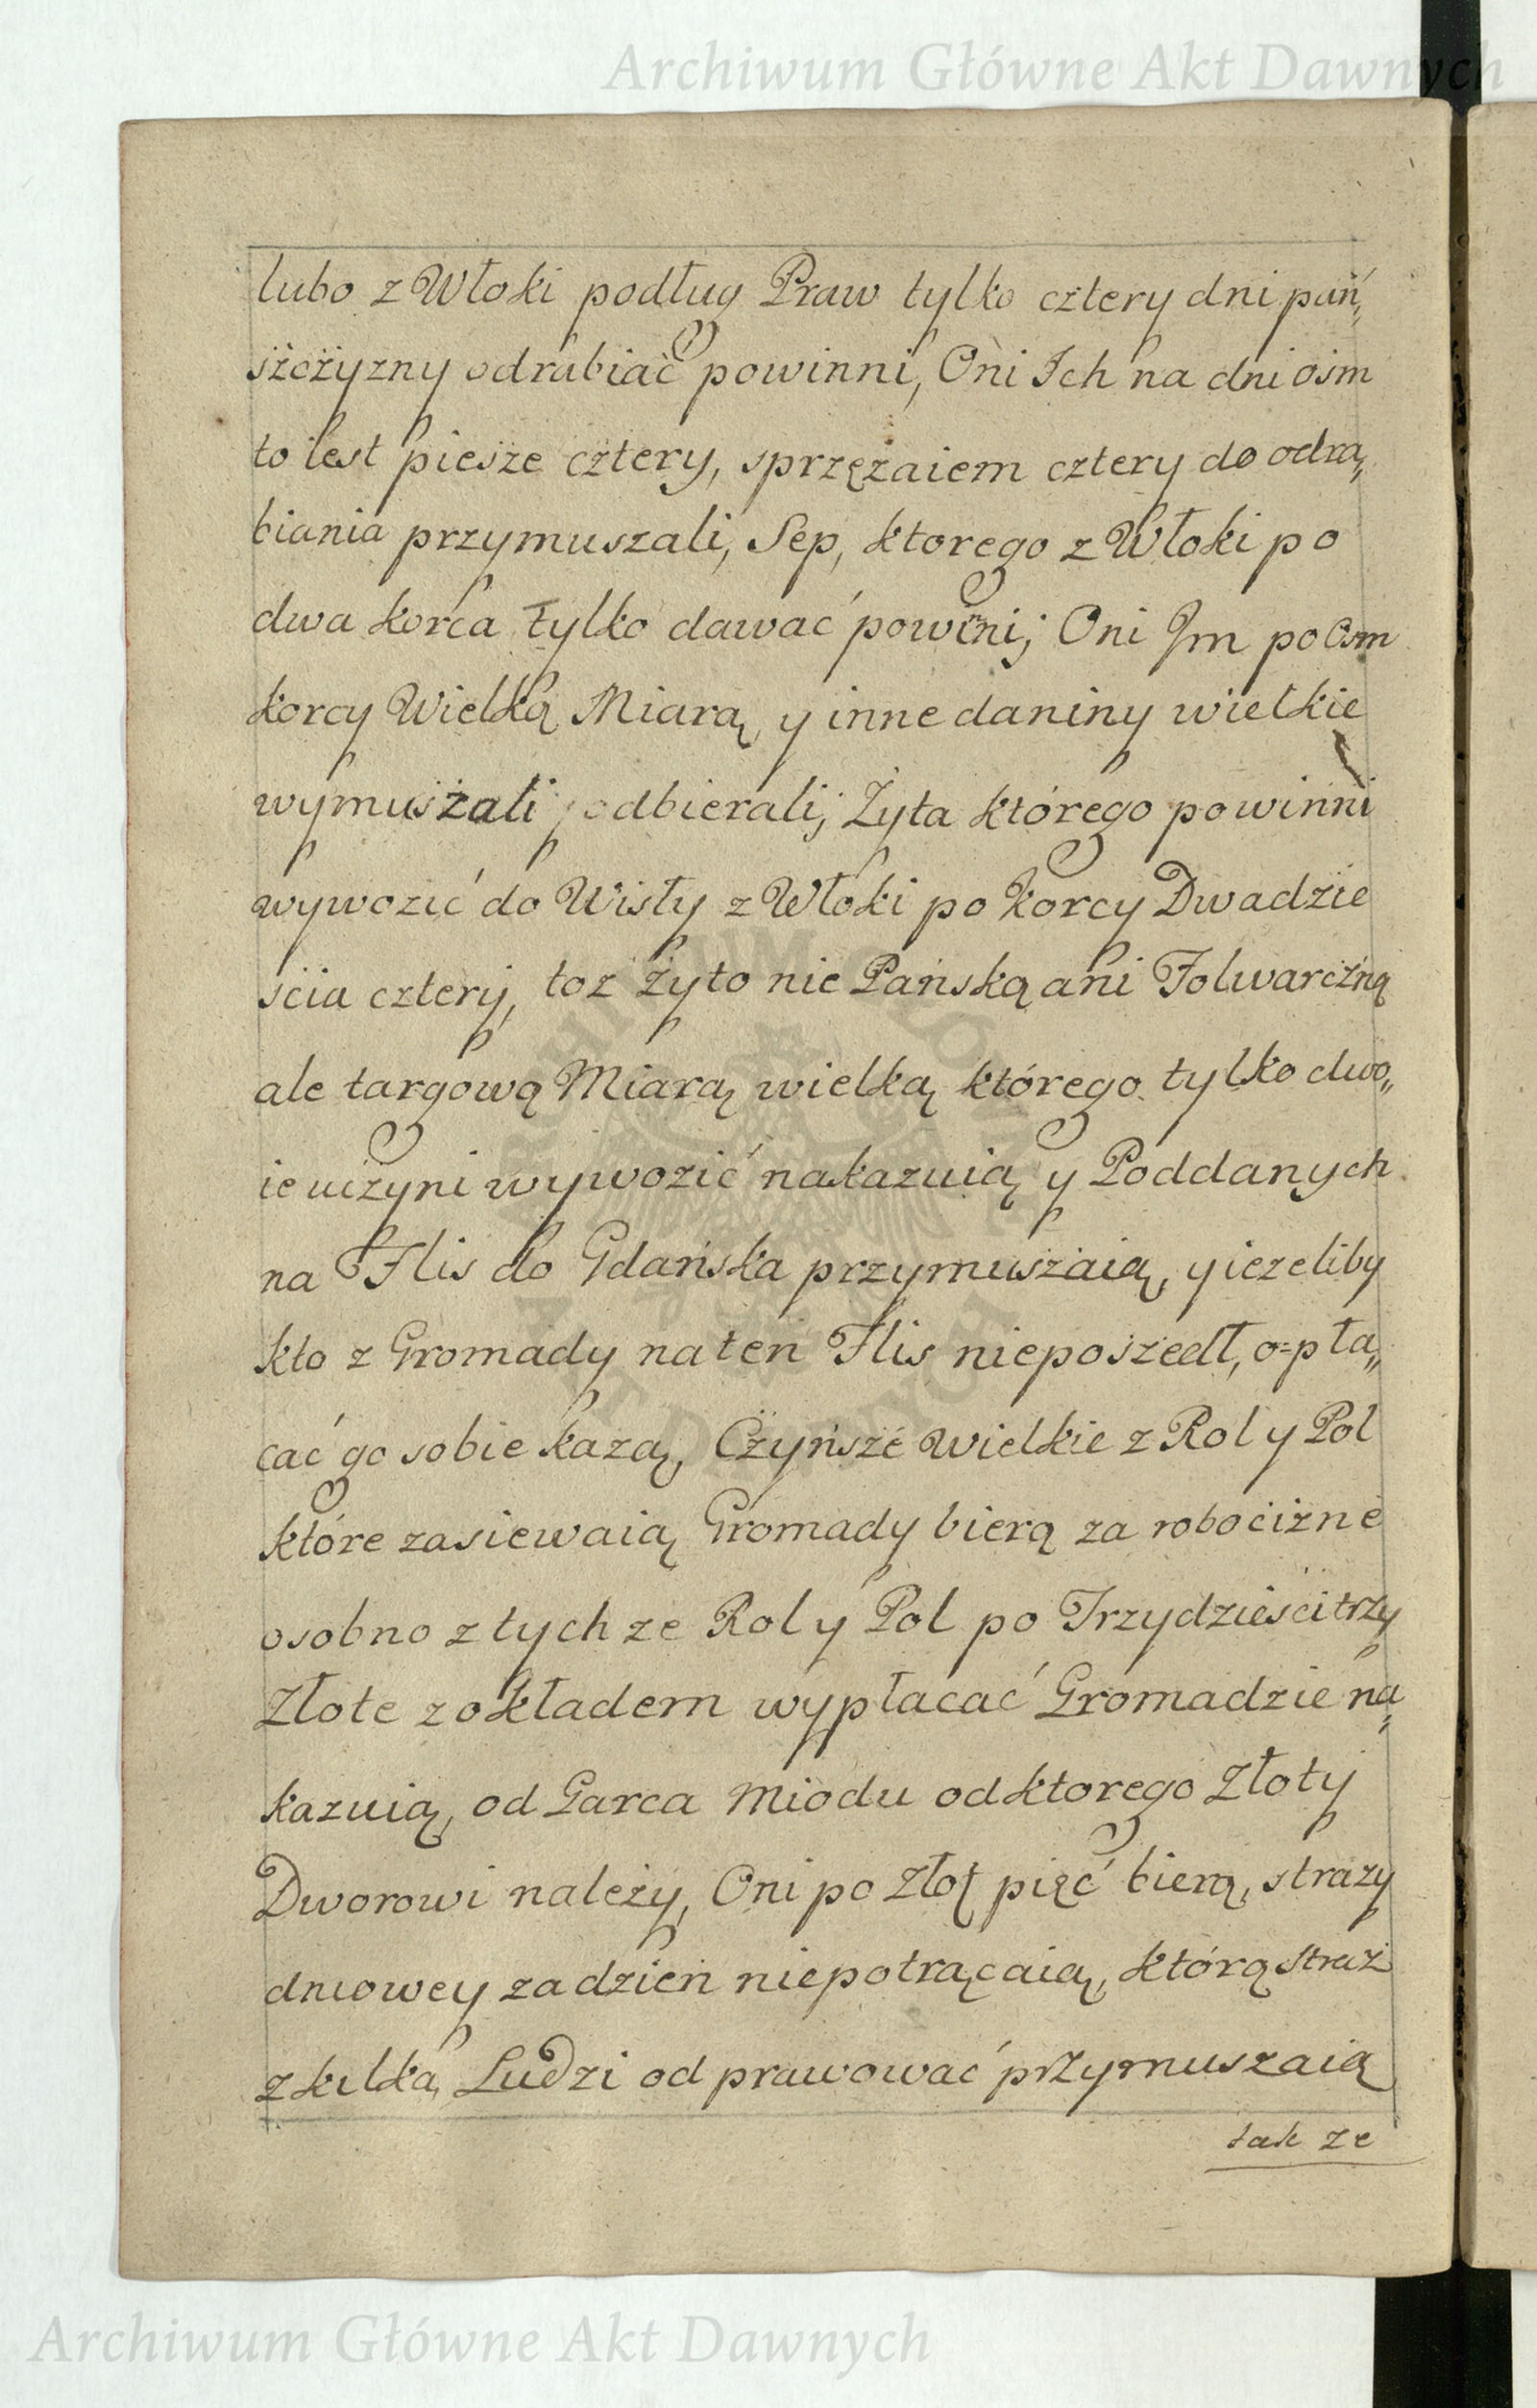 Archiwum Główne Akt Dawnych
lubo z Włoki podług Praw tylko cztery dni pań„
szczyzny odrabiać powinni, Oni Ich na dni ośm
to iest piesze cztery, sprzężaiem cztery do odra„
biania przymuszali, Sep, ktorego z Włoki po
dwa korca tylko dawać powinij Oni Jm po Osm
korcy Wielką Miarą, y inne daniny wielkie
wymuszali y odbierali; Żyta którego powinni
wywozić do Wisły z Włoki po korcy Dwadzie
ścia czterij, toz żyto nie Pańską ani Folwarczną
ale targową Miarą wielką którego tylko dwo„
ie uczyni wywozić nakazuią y Poddanych
na Flis do Gdańska przymuszaią, y iezeliby
kto z Gromady na ten Flis nieposzedł, o=pła„
cać go sobie kazą, Czyńsze wielkie z Rol y Pol
które zasiewaią Gromady bierą za robocizne
osobno z tych ze Rol y Pol po Trzydzieści trzy
Złote z okładem wypłacać Gromadzie na„
kazuią, od Garca Miodu od ktorego Złoty
Dworowi należy, Oni po Złot pięć bierą, strazy
dniowey za dzień niepotrącaią, którą straż
z kilką Ludzi odprawować przymuszaią
tak ze
Archiwum Główne Akt Dawnych